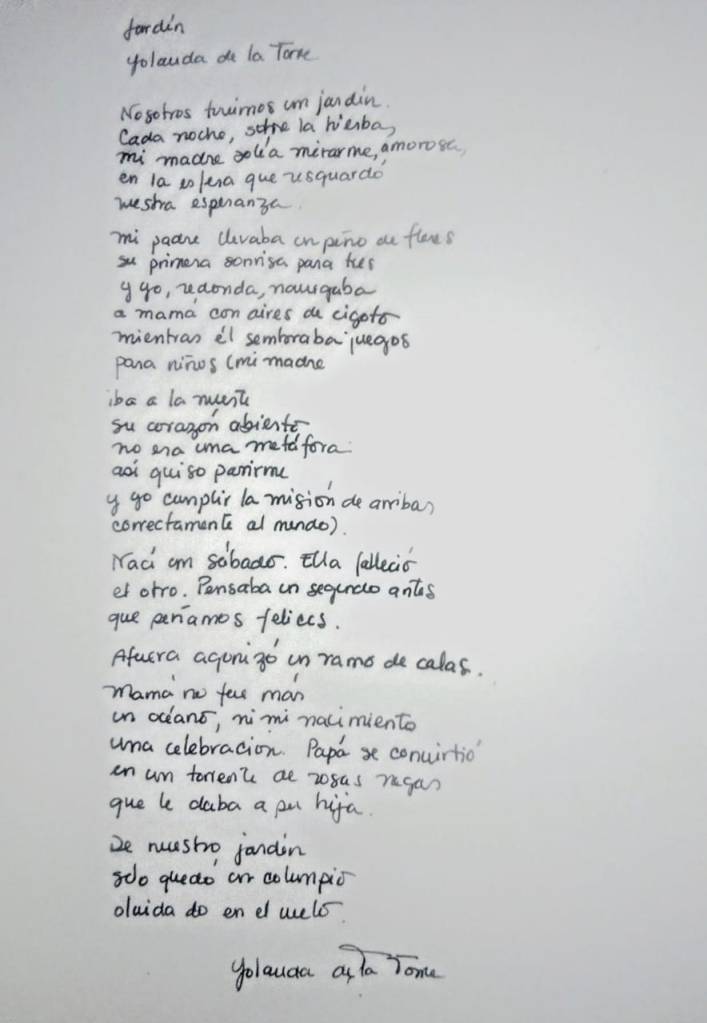 Jardín
Yolanda de la Torre
Nosotros tuvimos un jardín.
Cada noche, sobre la hierba,
mi madre solía mirarme, amorosa,
en la esfera que resguardó
nuestra esperanza.
mi padre llevaba en peño de flores
su primera sonrisa para tres
y yo, redonda, navegaba
a mamá con aires de cigoto
mientras él sembraba juegos
para niños (mi madre
iba a la muerte
su corazón abierto
no era una metáfora:
así quiso parirme
y yo cumplir la misión de arribar
correctamente al mundo).
Nací un sábado. Ella falleció
el otro. Pensaba un segundo antes
que seríamos felices.
Afuera agonizó un ramo de calas.
Mamá no fue más
un océano, ni mi nacimiento
una celebración. Papá se convirtió
en un torrente de rosas negras
que le daba a su hija.
De nuestro jardín
sólo quedó un columpio
olvidado en el vuelo.
Yolanda de la Torre